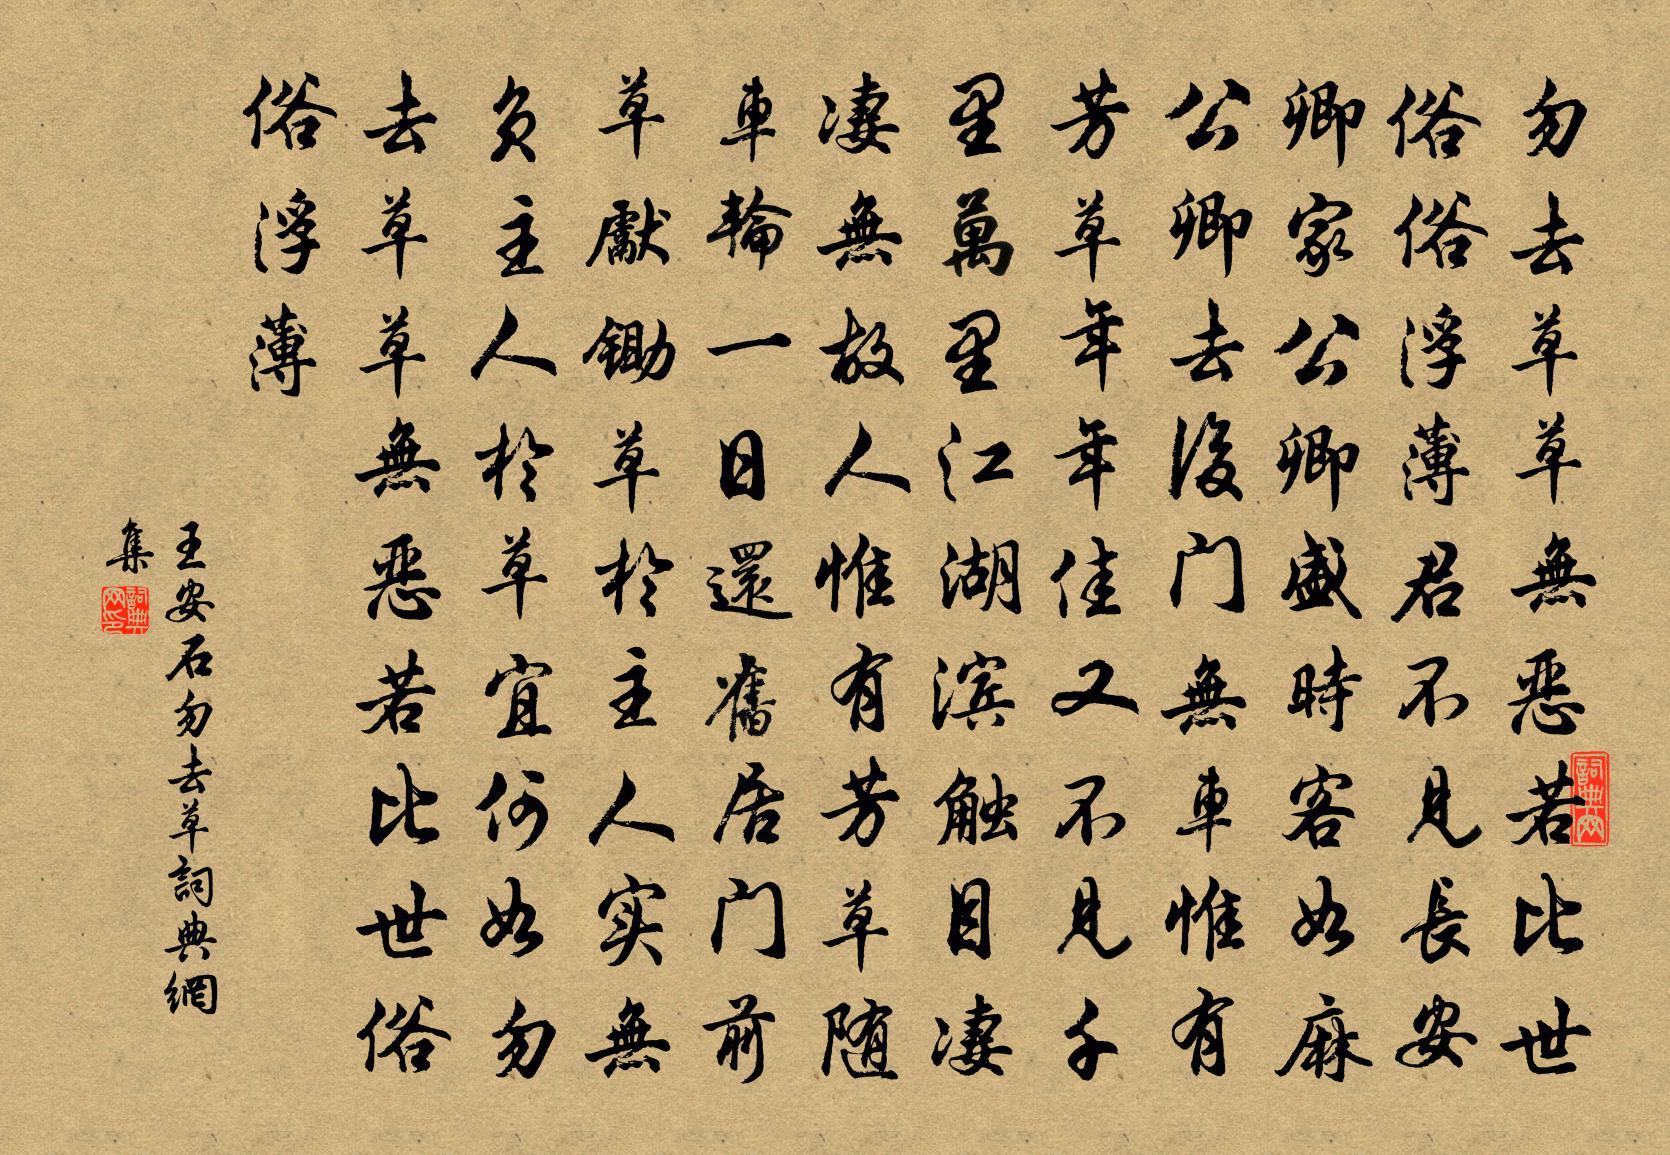 勿去草草無惡若比世
俗俗浮薄君不見長安
卿家公卿盛時客如麻
公卿去後门無車惟有
芳草年年佳又不見千
里萬里江湖滨触目凄
凄無故人惟有芳草随
車輪一日還舊居门前
草獻鋤草於主人实無
负主人於草宜何如勿
去草草無惡若比世俗
俗浮薄
王安石勿去草詞典網
集
詞典网
詞典网印